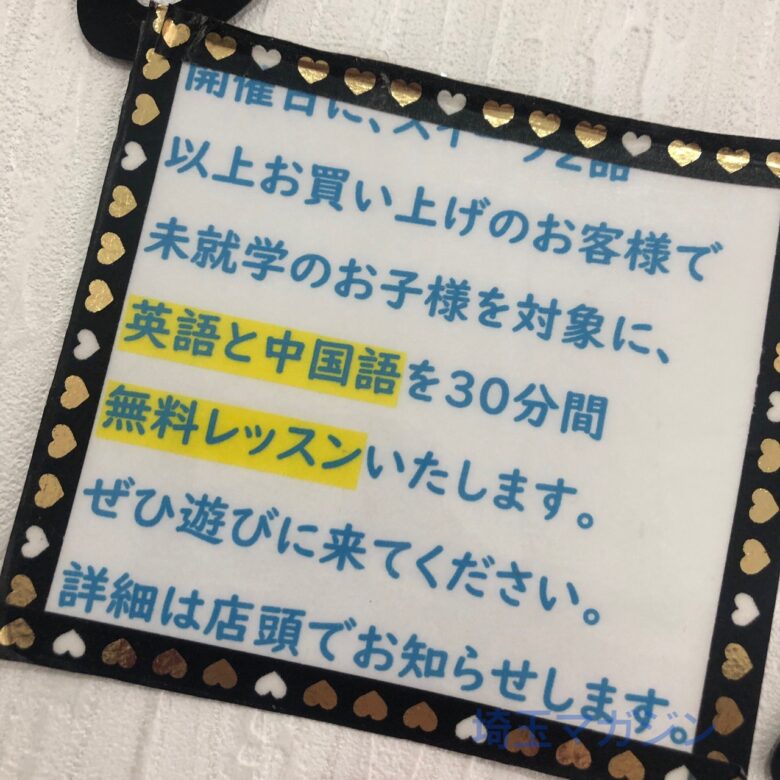 開催日に、スイーツ2品
以上お買い上げのお客様で
未就学のお子様を対象に、
英語と中国語を30分間
無料レッスンいたします。
ぜひ遊びに来てください。
詳細は店頭でお知らせします。
埼玉マガジン